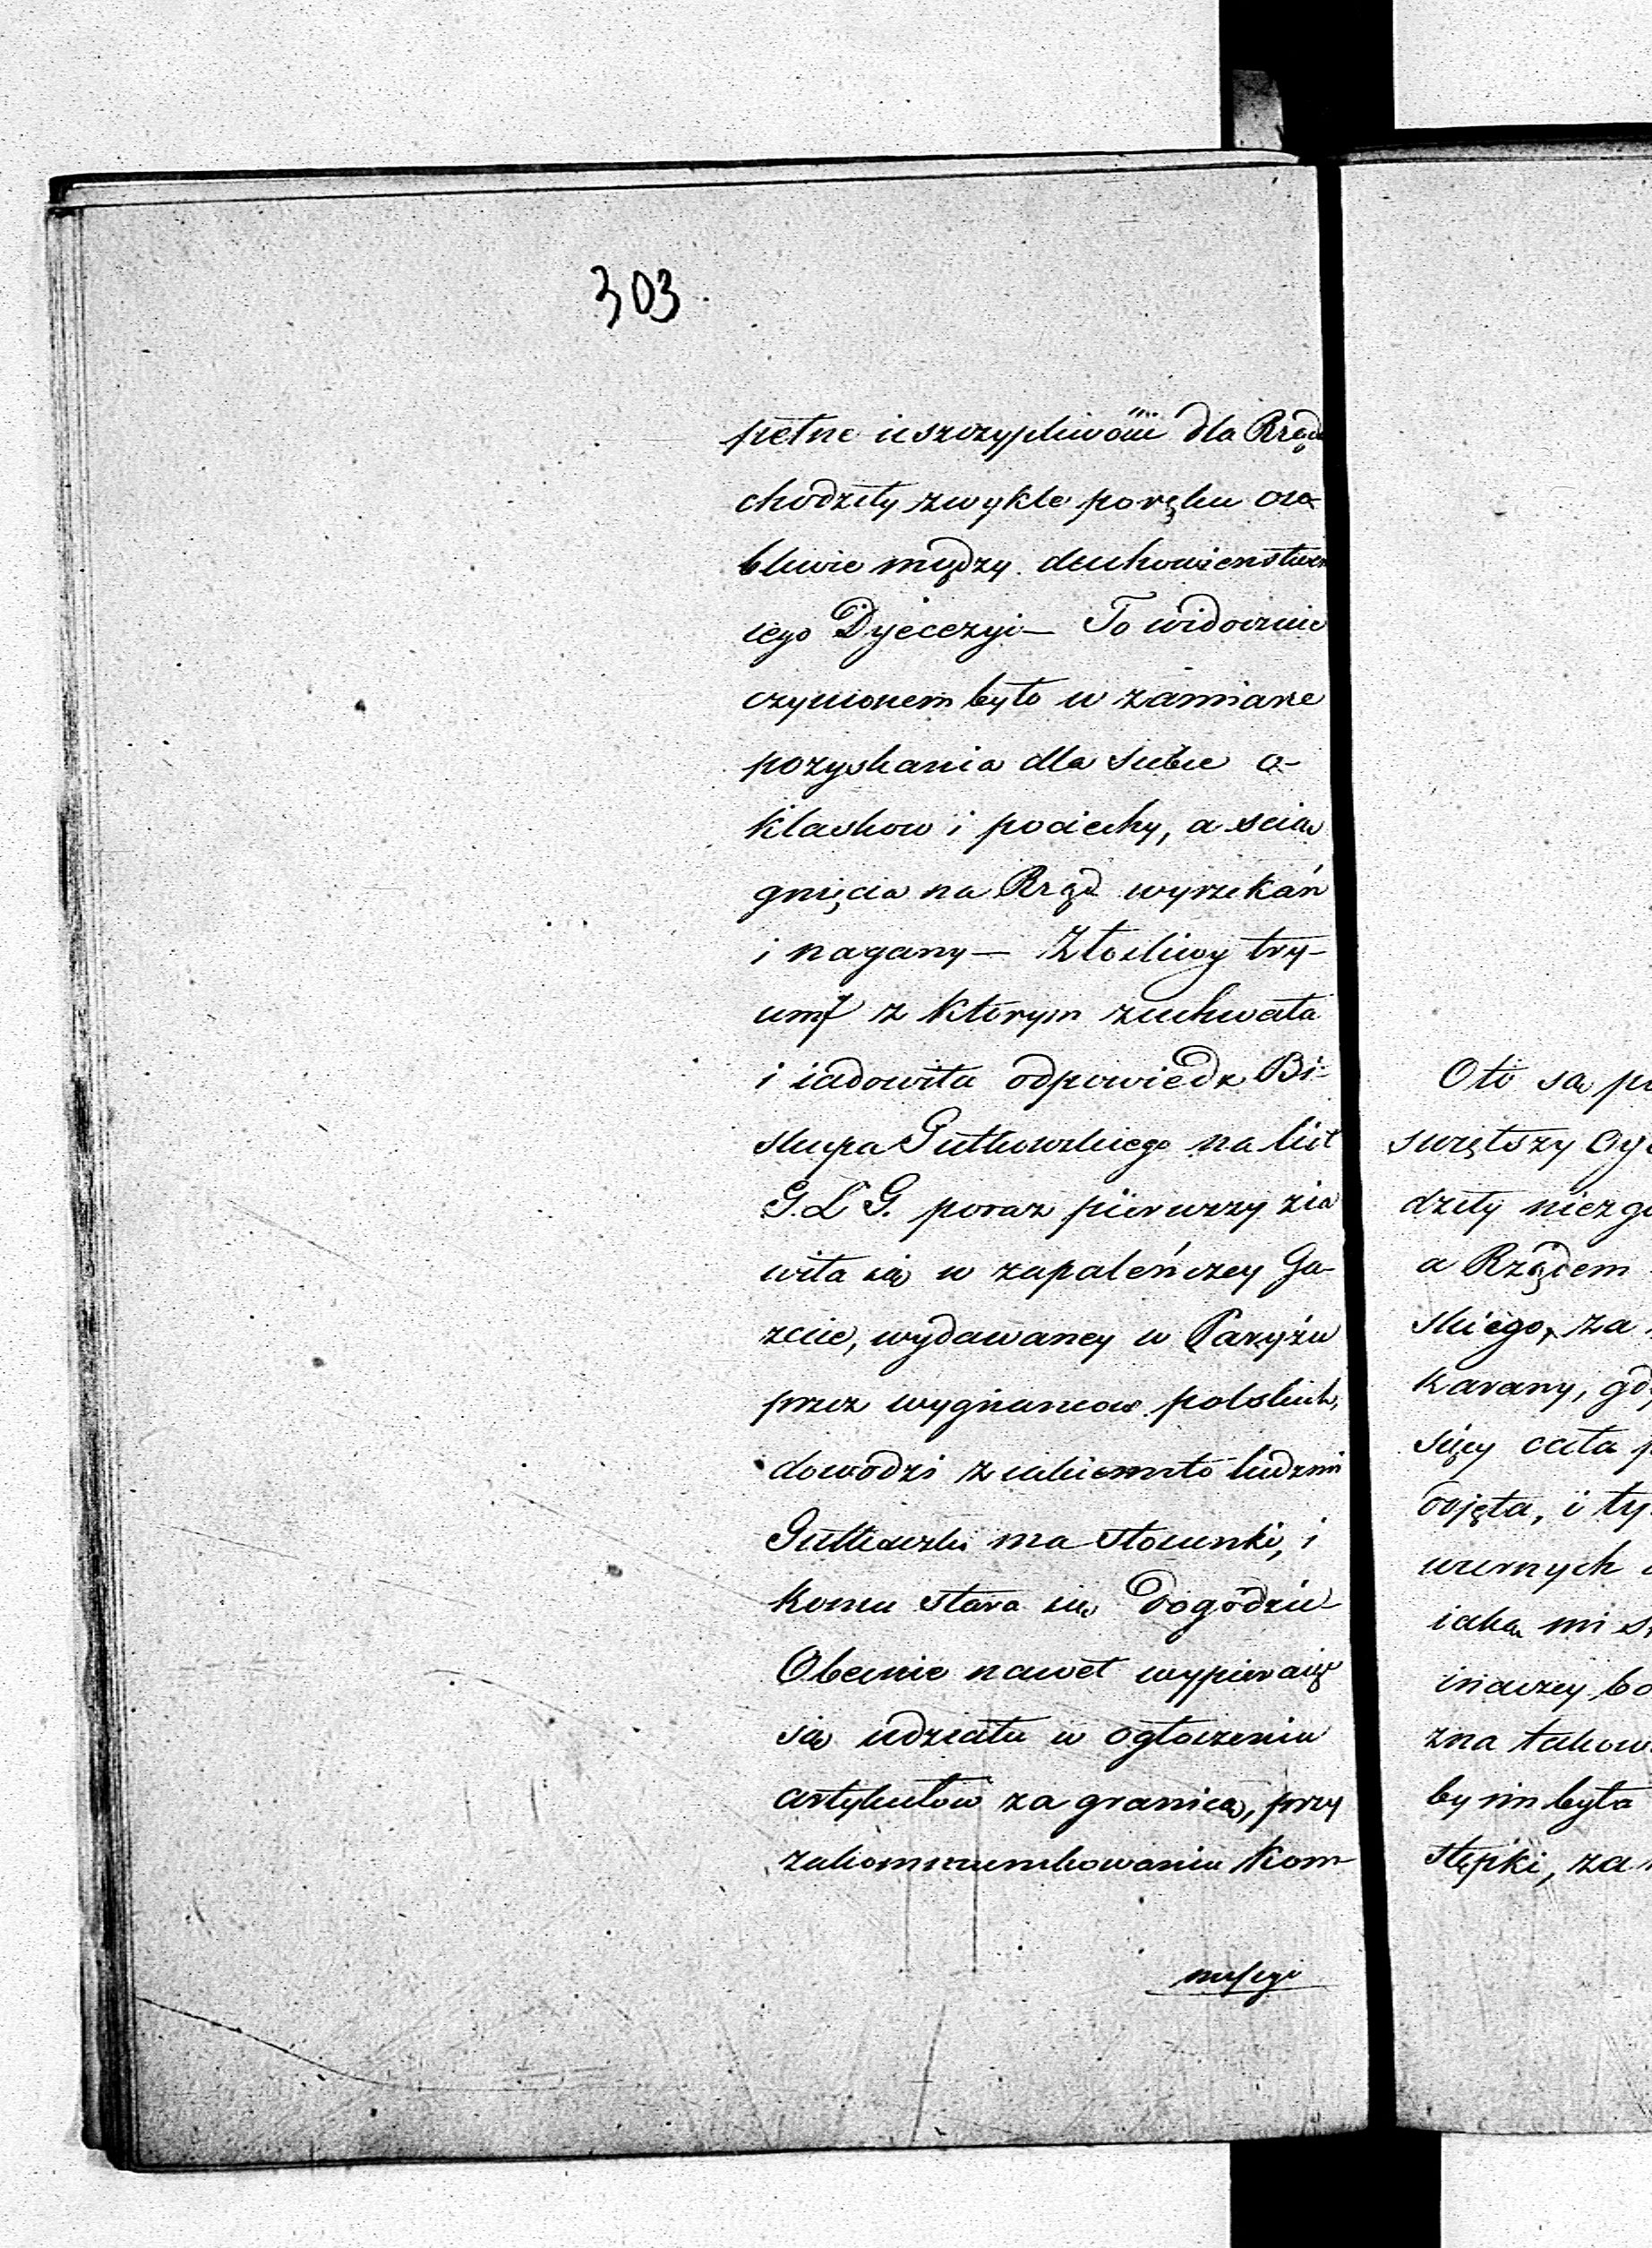 303
pełne uszczypliwości dla Rządu
chodziły zwykle poręku oso-
bliwie między duchowienstwem
iego Dyecezyi — To widocznie
czynionem było w zamiarze
pozyskania dla siebie o-
klaskow i pociechy, a scią
gnięcia na Rząd wyrzekań
i nagany — Złosliwy try-
umf z ktorym zuchwała
i iadowita odpowiedz Bi-
skupa Gutkowskiego na list
G. L G. poraz pierwszy zia
wiła się w zapaleńczey Ga-
zecie, wydawaney w Paryżu
przez wygnancow polskich,
dowodzi z iakiemito ludzmi
Gutkowski ma stosunki, i
komu stara się dogodzić
Obecnie nawet wypieraiąc
się udziału w ogłoszeniu
artykułow za granicą, przy
zakommunikowaniu Kom-
missyi
Oto są
swiętszy Oy
dziły niezg
a Rządem
skiego, za
karany, gd
siąy cała p
odjęta, i ty
wiernych
iaką mi s
inaczey bo
zna takow
by im była
stępki, za